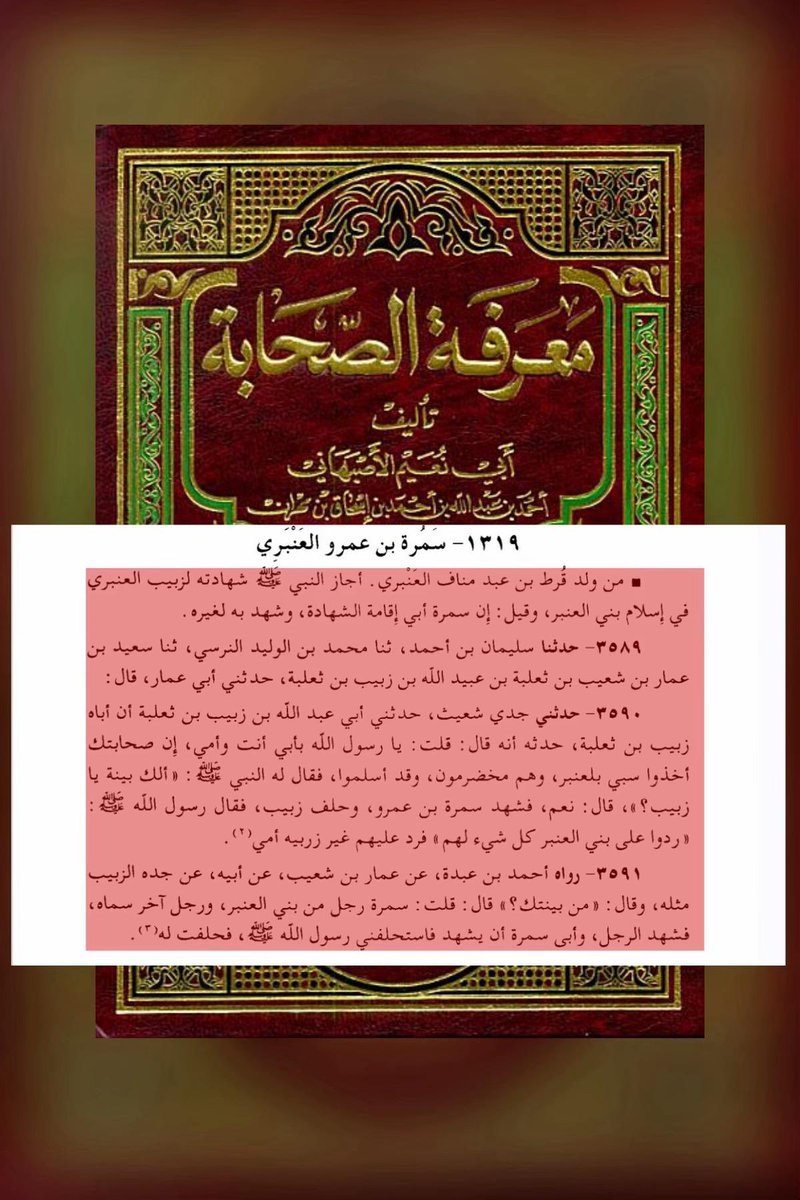 مَعرفَة الصّحَابة
تأليف
أَبي نُعَيم الأَصبَهَاني
أحمد بن عبد الله بن أحمد بن إسحاق بن مهران
١٣١٩- سَمُرة بن عمرو العَنْبَرِي
■ من ولد قُرط بن عبد مناف العَنْبري. أجاز النبي ﷺ شهادته لزبيب العنبري
في إسلام بني العنبر، وقيل: إن سمرة أبي إقامة الشهادة، وشهد به لغيره.
٣٥٨٩- حدثنا سليمان بن أحمد، ثنا محمد بن الوليد النرسي، ثنا سعيد بن
عمار بن شعيب بن ثعلبة بن عبيد الله بن زبيب بن ثعلبة، حدثني أبي عمار، قال:
٣٥٩٠- حدثني جدي شعيث، حدثني أبي عبد الله بن زبيب بن ثعلبة أن أباه
زبيب بن ثعلبة، حدثه أنه قال: قلت: يا رسول الله بأبي أنت وأمي، إن صحابتك
أخذوا سبي بلعنبر، وهم مخضرمون، وقد أسلموا، فقال له النبي ﷺ: «ألك بينة يا
زبيب؟»، قال: نعم، فشهد سمرة بن عمرو، وحلف زبيب، فقال رسول الله ﷺ:
«ردوا على بني العنبر كل شيء لهم» فرد عليهم غير زربيه أمي(٢).
٣٥٩١- رواه أحمد بن عبدة، عن عمار بن شعيب، عن أبيه، عن جده الزبيب
مثله، وقال: «من بينتك؟» قال: قلت: سمرة رجل من بني العنبر، ورجل آخر سماه،
فشهد الرجل، وأبى سمرة أن يشهد فاستحلفني رسول الله ﷺ، فحلفت له(٣).